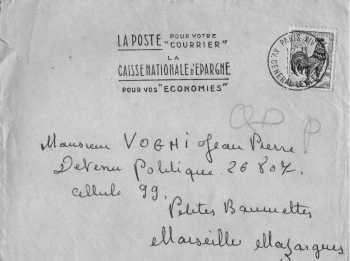 LA POSTE POUR VOTRE "COURRIER"
LA
CAISSE NATIONALE D'EPARGNE
POUR VOS "ECONOMIES"
PARIS XII
Monsieur VOGNI Jean Pierre
Detenu Politique 26 807
cellule 99.
Petites Baumettes
Marseille Mazargues